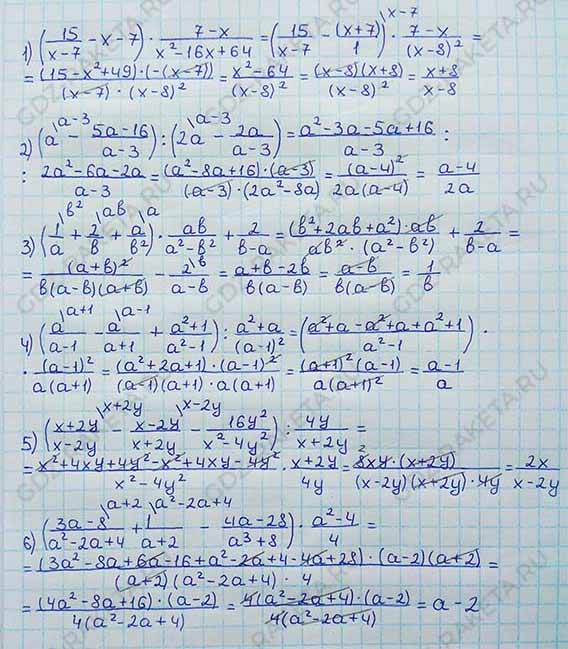 1) (15/(x-7) - x - 7) · (7-x)/(x²-16x+64) = (15/(x-7) - (x+7)/1 \x-7) · (7-x)/(x-8)² =
= ((15-x²+49)·(-(x-7)))/((x-7)·(x-8)²) = (x²-64)/(x-8)² = ((x-8)(x+8))/(x-8)² = (x+8)/(x-8)
2) (a \a-3 - (5a-16)/(a-3)) : (2a \a-3 - 2a/(a-3)) = (a²-3a-5a+16)/(a-3) :
: (2a²-6a-2a)/(a-3) = ((a²-8a+16)·(a-3))/((a-3)·(2a²-8a)) = (a-4)²/(2a(a-4)) = (a-4)/2a
3) (1/a \b² + 2/b \ab + a/b² \a) · ab/(a²-b²) + 2/(b-a) = ((b²+2ab+a²)·ab)/(ab²·(a²-b²)) + 2/(b-a) =
= (a+b)²/(b(a-b)(a+b)) - 2/(a-b) \b = (a+b-2b)/(b(a-b)) = (a-b)/(b(a-b)) = 1/b
4) (a/(a-1) \a+1 - a/(a+1) \a-1 + (a²+1)/(a²-1)) : (a²+a)/(a-1)² = ((a²+a-a²+a+a²+1)/(a²-1)) ·
· (a-1)²/(a(a+1)) = ((a²+2a+1)·(a-1)²)/((a-1)(a+1)·a(a+1)) = ((a+1)²(a-1))/(a(a+1)²) = (a-1)/a
5) ((x+2y)/(x-2y) \x+2y - (x-2y)/(x+2y) \x-2y - 16y²/(x²-4y²)) : 4y/(x+2y) =
= (x²+4xy+4y²-x²+4xy-4y²)/(x²-4y²) · (x+2y)/4y = (8xy·(x+2y))/((x-2y)(x+2y)·4y) 2 = 2x/(x-2y)
6) ((3a-8)/(a²-2a+4) \a+2 + 1/(a+2) \a²-2a+4 - (4a-28)/(a³+8)) · (a²-4)/4 =
= ((3a²-8a+6a-16+a²-2a+4-4a+28)·(a-2)(a+2))/((a+2)(a²-2a+4)·4) =
= ((4a²-8a+16)·(a-2))/(4(a²-2a+4)) = (4(a²-2a+4)·(a-2))/(4(a²-2a+4)) = a-2
GDZRAKETA.RU